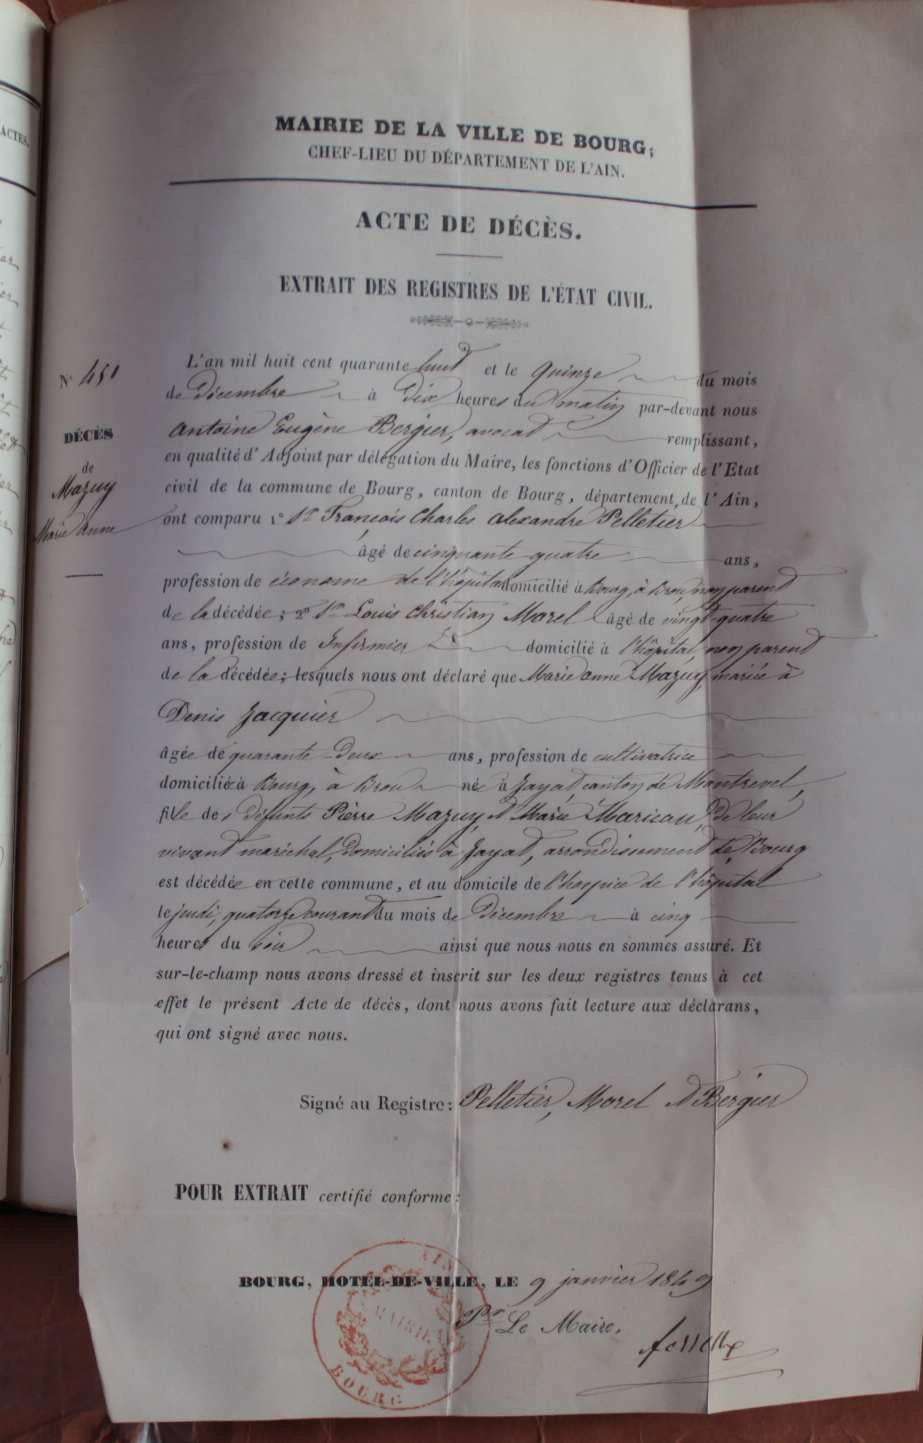 ACTES.
MAIRIE DE LA VILLE DE BOURG;
CHEF-LIEU DU DÉPARTEMENT DE L'AIN.
ACTE DE DÉCÈS.
EXTRAIT DES REGISTRES DE L'ÉTAT CIVIL.
N° 451
DÉCÈS
de
Mazuy
Marie Anne
L'an mil huit cent quarante huit et le quinze du mois
de Décembre à Dix heures du matin par-devant nous
Antoine Eugène Bergier, avocat remplissant,
en qualité d'Adjoint par délégation du Maire, les fonctions d'Officier de l'État
civil de la commune de Bourg, canton de Bourg, département de l'Ain,
ont comparu 1° Sr François Charles Alexandre Pelletier
âgé de cinquante quatre ans,
profession de économe de l'hôpital domicilié à Bourg, à Brou, non parent
de la décédée; 2° Sr Louis Christian Morel âgé de vingt quatre
ans, profession de Infirmier domicilié à l'hôpital, non parent
de la décédée; lesquels nous ont déclaré que Marie Anne Mazuy, mariée à
Denis Jacquier
âgée de quarante-Deux ans, profession de cultivatrice
domiciliée à Bourg, à Brou née à Jayat, canton de Montrevel,
fille de défunts Pierre Mazuy et Marie Marieau, De leur
vivant maréchal, domiciliés à Jayat, arrondissement de Bourg
est décédée en cette commune, et au domicile de l'hospice de l'hôpital
le jeudi, quatorze courant du mois de Décembre à cinq
heures du soir ainsi que nous nous en sommes assuré. Et
sur-le-champ nous avons dressé et inscrit sur les deux registres tenus à cet
effet le présent Acte de décès, dont nous avons fait lecture aux déclarans,
qui ont signé avec nous.
Signé au Registre: Pelletier, Morel et Bergier
POUR EXTRAIT certifié conforme:
BOURG, HOTEL-DE-VILLE, LE 9 janvier 1849
Pr Le Maire.
MAIRIE
BOURG